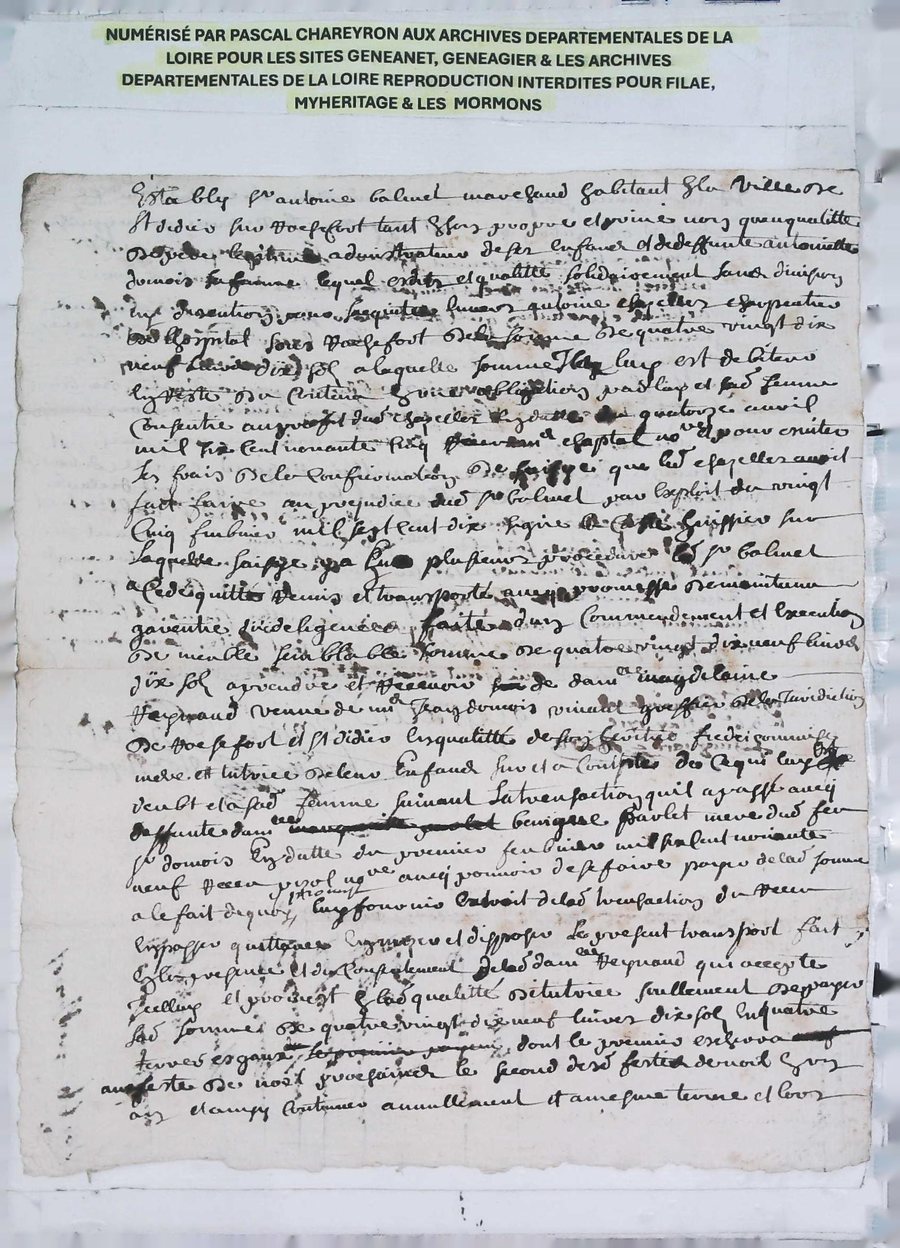 NUMÉRISÉ PAR PASCAL CHAREYRON AUX ARCHIVES DEPARTEMENTALES DE LA
LOIRE POUR LES SITES GENEANET, GENEAGIER & LES ARCHIVES
DEPARTEMENTALES DE LA LOIRE REPRODUCTION INTERDITES POUR FILAE,
MYHERITAGE & LES MORMONS
Estably Sr antoine balmet marchand habitant en la Ville de
St didier sur Rochefort tant en son propre et privé nom quenqualitte
de pere legitime administrateur de ses enfans et de deffunte antoinette
domois sa femme lequel esdits et qualitte solidairement sans division
ny discution antoine chapelles charpentier
de lhospital sous Rochefort de la somme de quatre vingt dix
neuf dix sol a laquelle somme est debiteur
en reste du contenu obligation par luy et sad femme
Consentie au proffit dud chapelles quatorze avril
mil six cent nonante cinq chaptal pour eviter
les frais de la confirmation de saisye que led chapelles avoit
fait faire au prejudice dud Sr balmet par exploit du vingt
cinq febvrier mil sept cent dix signé huissier sur
laquelle saisye y a eu plusieurs procedures led Sr balmet
a cede quitte remis et transporte avecq promesse de maintenir
garentie dans Commendement et execution
de meuble semblable somme de quatre vingt dix neuf livres
dix sol a prendre et Recevoir de damlle magdelaine
Reynaud veuve de me domois vivant greffier de la Jurisdiction
de Rochefort et St didier en qualitté de son heritiere fideicommise
mere et tutrice de leur Enfans sur et a compte de ce qui luy est
deubt et a sad femme suivant la transaction quil a passé avecq
deffunte damlle benigne parlet mere dud feu
Sr domois En datte du premier febvrier mil six cent nonante
neuf avecq pouvoir de se faire payer de lad somme
a le fait de quoy promis luy fournir Extrait de lad transaction du
En passer quittance et disposer le present transport fait
En la presence et du Consentement de lad damlle Reynaud qui accepte
Icelluy et promest en lad qualitté de tutrice seullement de payer
lad somme de quatre vingt dix neuf livres dix sol En quatre
termes esgaux dont le premier eschera
au feste de noel prochaines le second desd festes de noel
an et ainsy Continuer annuellement et a mesme terme et lors